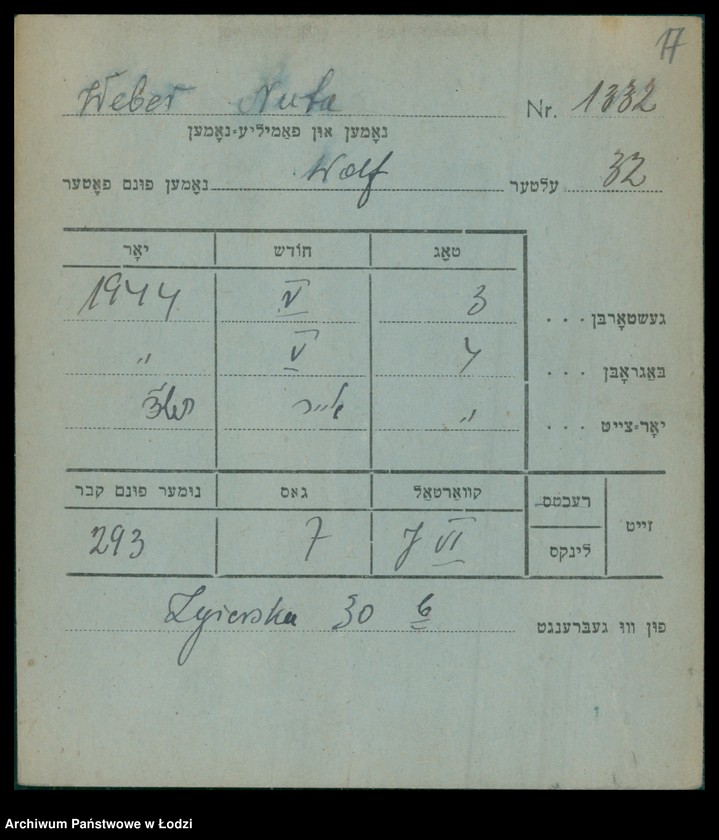 17
Weber Nuta Nr. 1332
נאָמען און פאַמיליע-נאָמען
נאָמען פונם פאָטער Wolf עלטער 32
טאָג חודש יאָר
געשטאָרבן . . . 3 V 1944
באַגראָבן . . . 4 V "
יאָר-צייט . . . " אייר תש"ד
זייט רעכטס קוואַרטאַל גאַס נומער פונם קבר
לינקס J VI 7 293
פון וווּ געברענגט Zgierska 30 6
Archiwum Państwowe w Łodzi